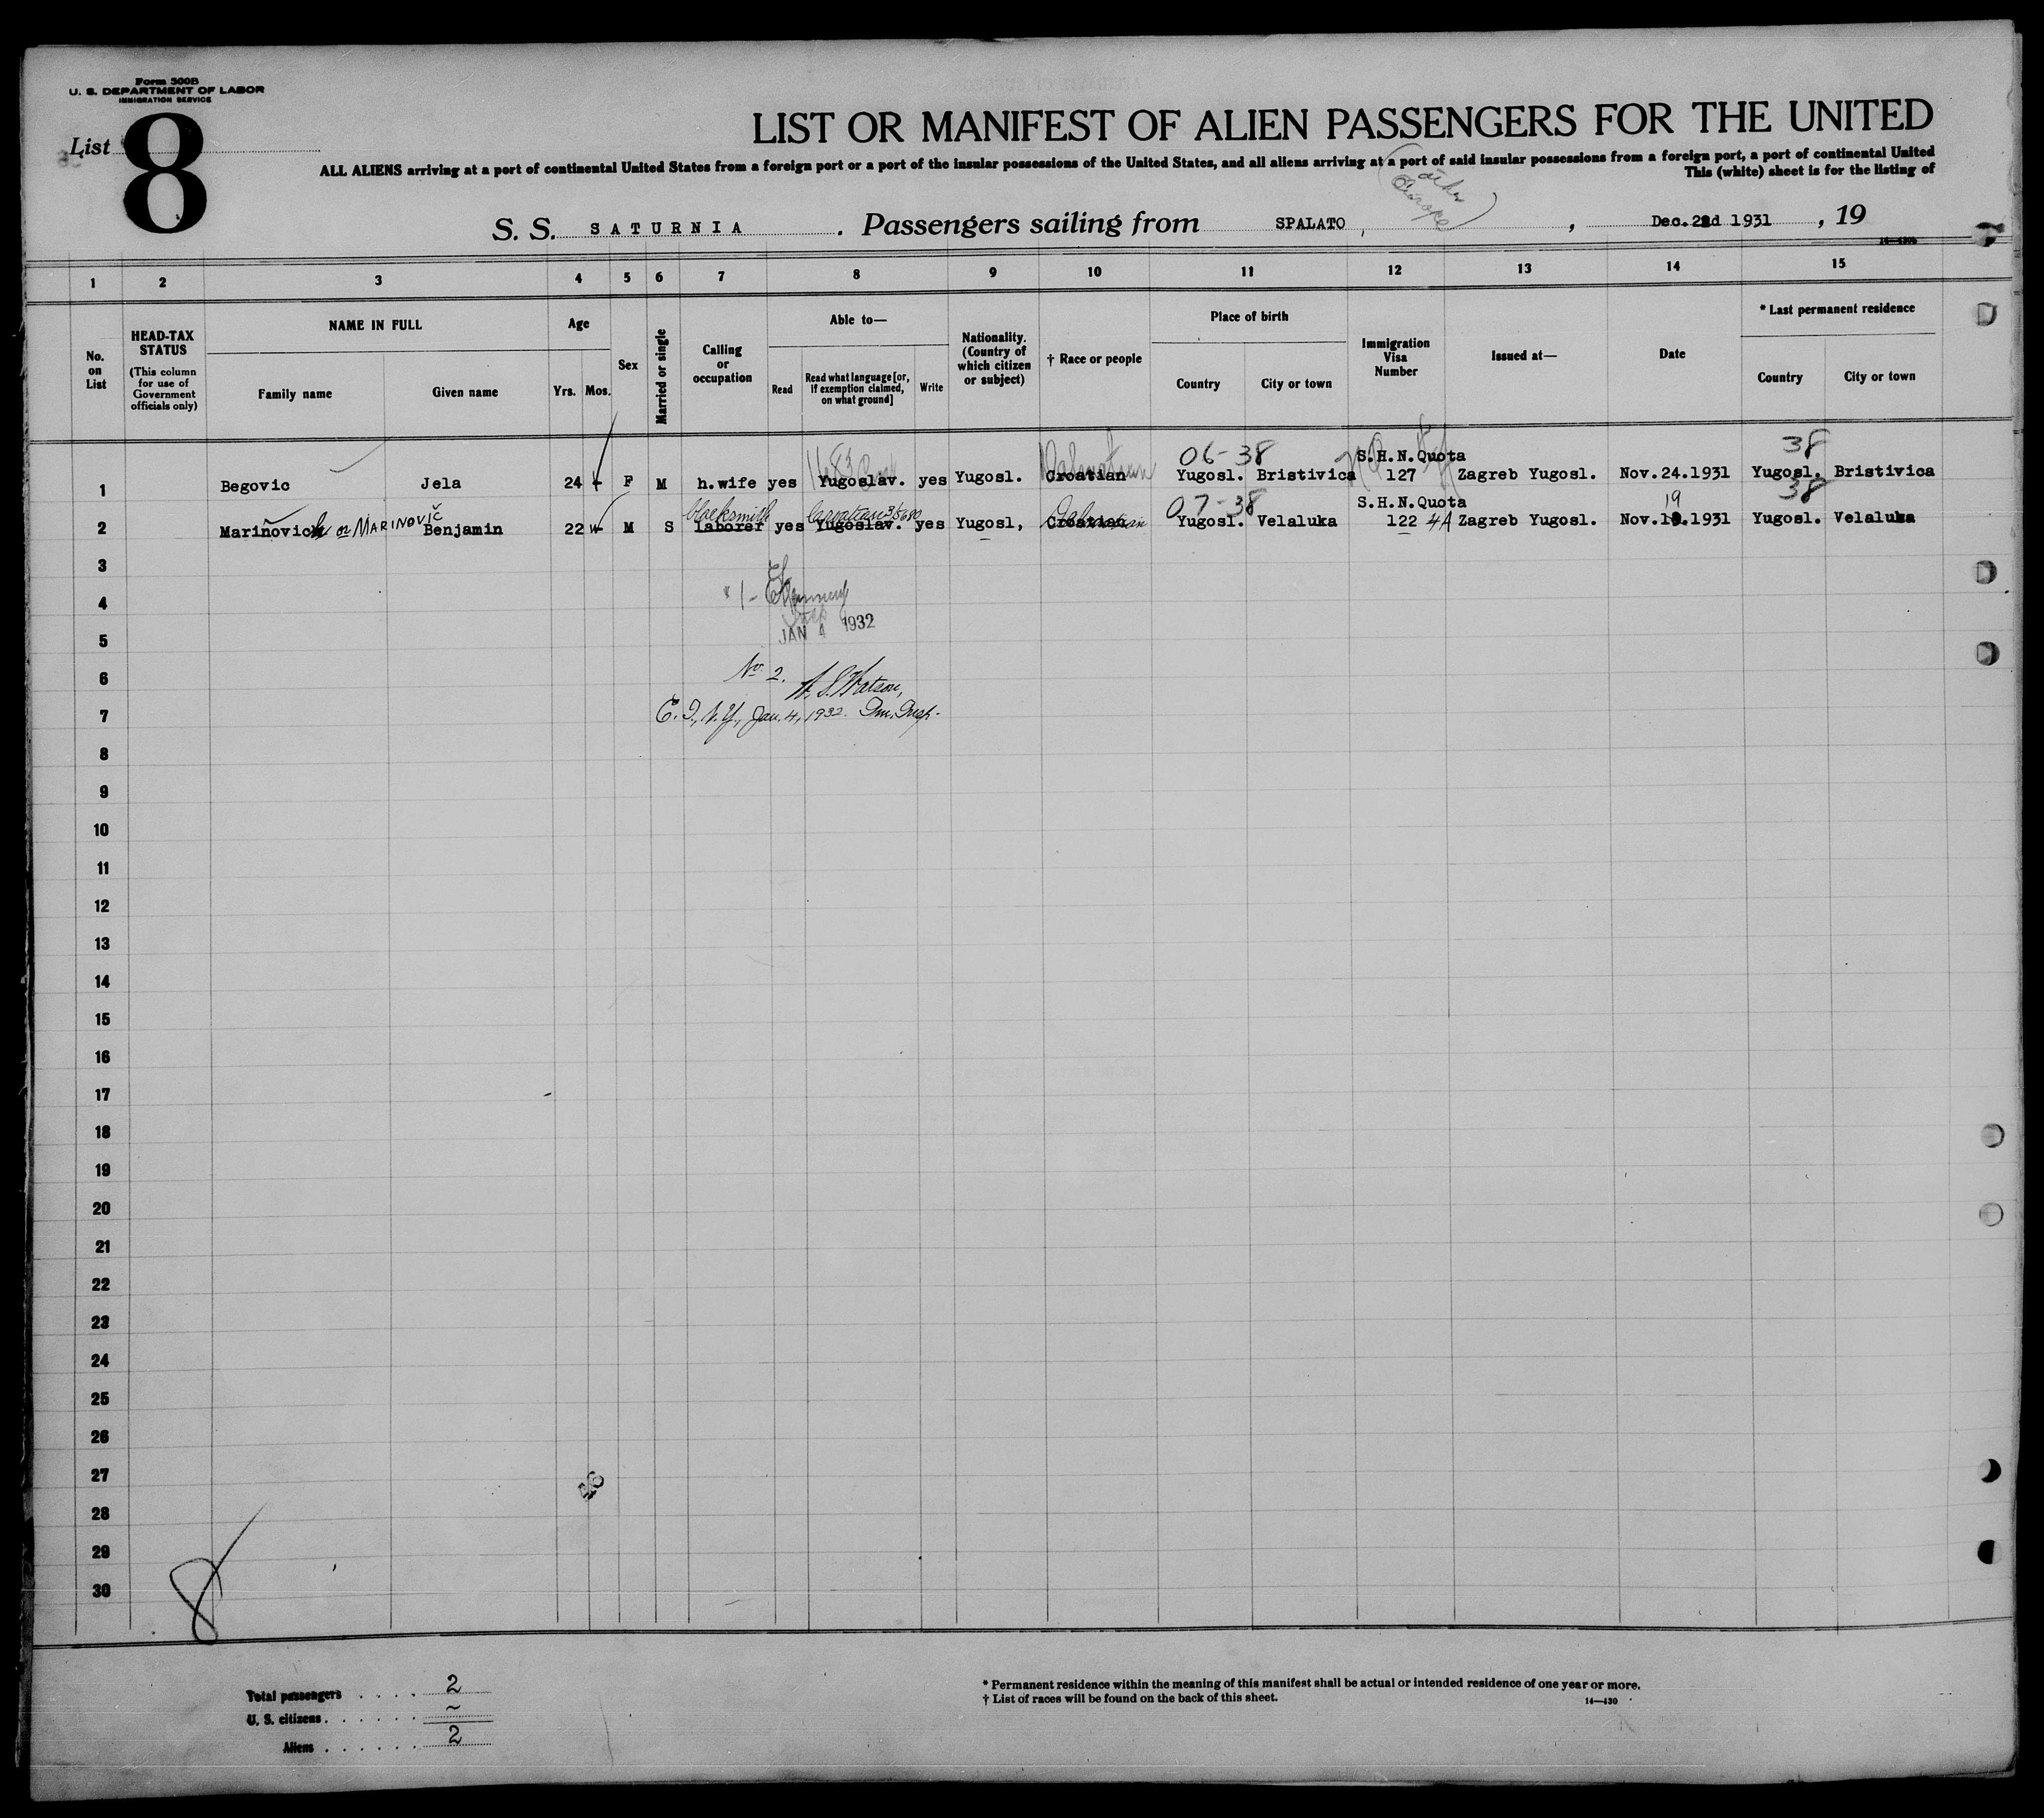 Form 500B
U. S. DEPARTMENT OF LABOR
IMMIGRATION SERVICE
List 8
LIST OR MANIFEST OF ALIEN PASSENGERS FOR THE UNITED
ALL ALIENS arriving at a port of continental United States from a foreign port or a port of the insular possessions of the United States, and all aliens arriving at a port of said insular possessions from a foreign port, a port of continental United
This (white) sheet is for the listing of
S. S. SATURNIA . Passengers sailing from SPALATO , , Dec. 1931 , 19
1 2 3 4 5 6 7 8 9 10 11 12 13 14 15
No. on List
HEAD-TAX STATUS
(This column for use of Government officials only)
NAME IN FULL
Family name Given name
Age
Yrs. Mos.
Sex
Married or single
Calling or occupation
Able to—
Read
Read what language [or, if exemption claimed, on what ground]
Write
Nationality. (Country of which citizen or subject)
† Race or people
Place of birth
Country City or town
Immigration Visa Number
Issued at—
Date
* Last permanent residence
Country City or town
06-38 S.H.N.Quota 38
1 Begovic Jela 24 F M h.wife yes Yugoslav. yes Yugosl. Croatian Yugosl. Bristivica 127 Zagreb Yugosl. Nov.24.1931 Yugosl. Bristivica
blacksmith 07-38 S.H.N.Quota 19 38
2 Marinovich or MARINOVIČ Benjamin 22 M S laborer yes Yugoslav. yes Yugosl, Croatian Yugosl. Velaluka 122 4A Zagreb Yugosl. Nov. 1931 Yugosl. Velaluka
3
4
JAN 4 1932
5
6 No 2. Watson,
7 E. I., N.Y., Jan. 4, 1932. Im. Insp.
8
9
10
11
12
13
14
15
16
17
18
19
20
21
22
23
24
25
26
27
28
29
30
8
Total passengers . . . . 2
U. S. citizens . . . . . . ~
Aliens . . . . . . 2
* Permanent residence within the meaning of this manifest shall be actual or intended residence of one year or more.
† List of races will be found on the back of this sheet.
14—430